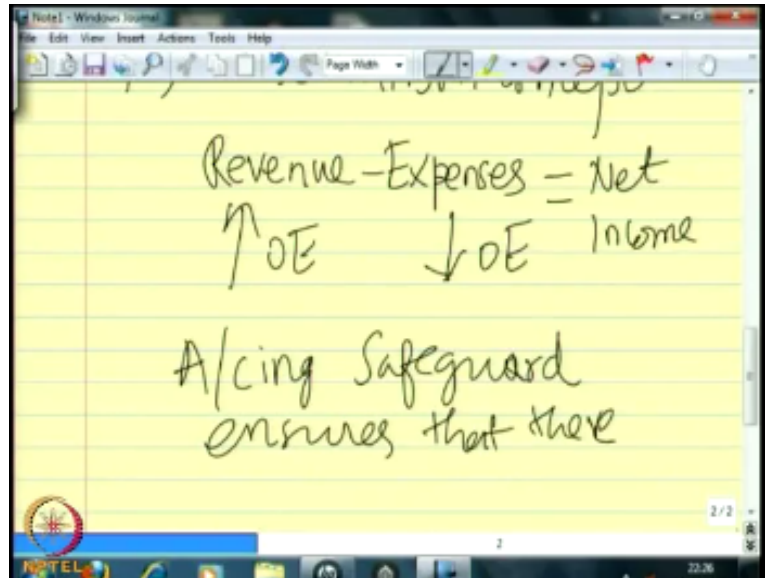 Note1 - Windows Journal
File Edit View Insert Actions Tools Help
Page Width
Revenue - Expenses = Net
Income
↑ OE ↓ OE
A/cing Safeguard
ensures that there
2/2
2
NPTEL
22:26